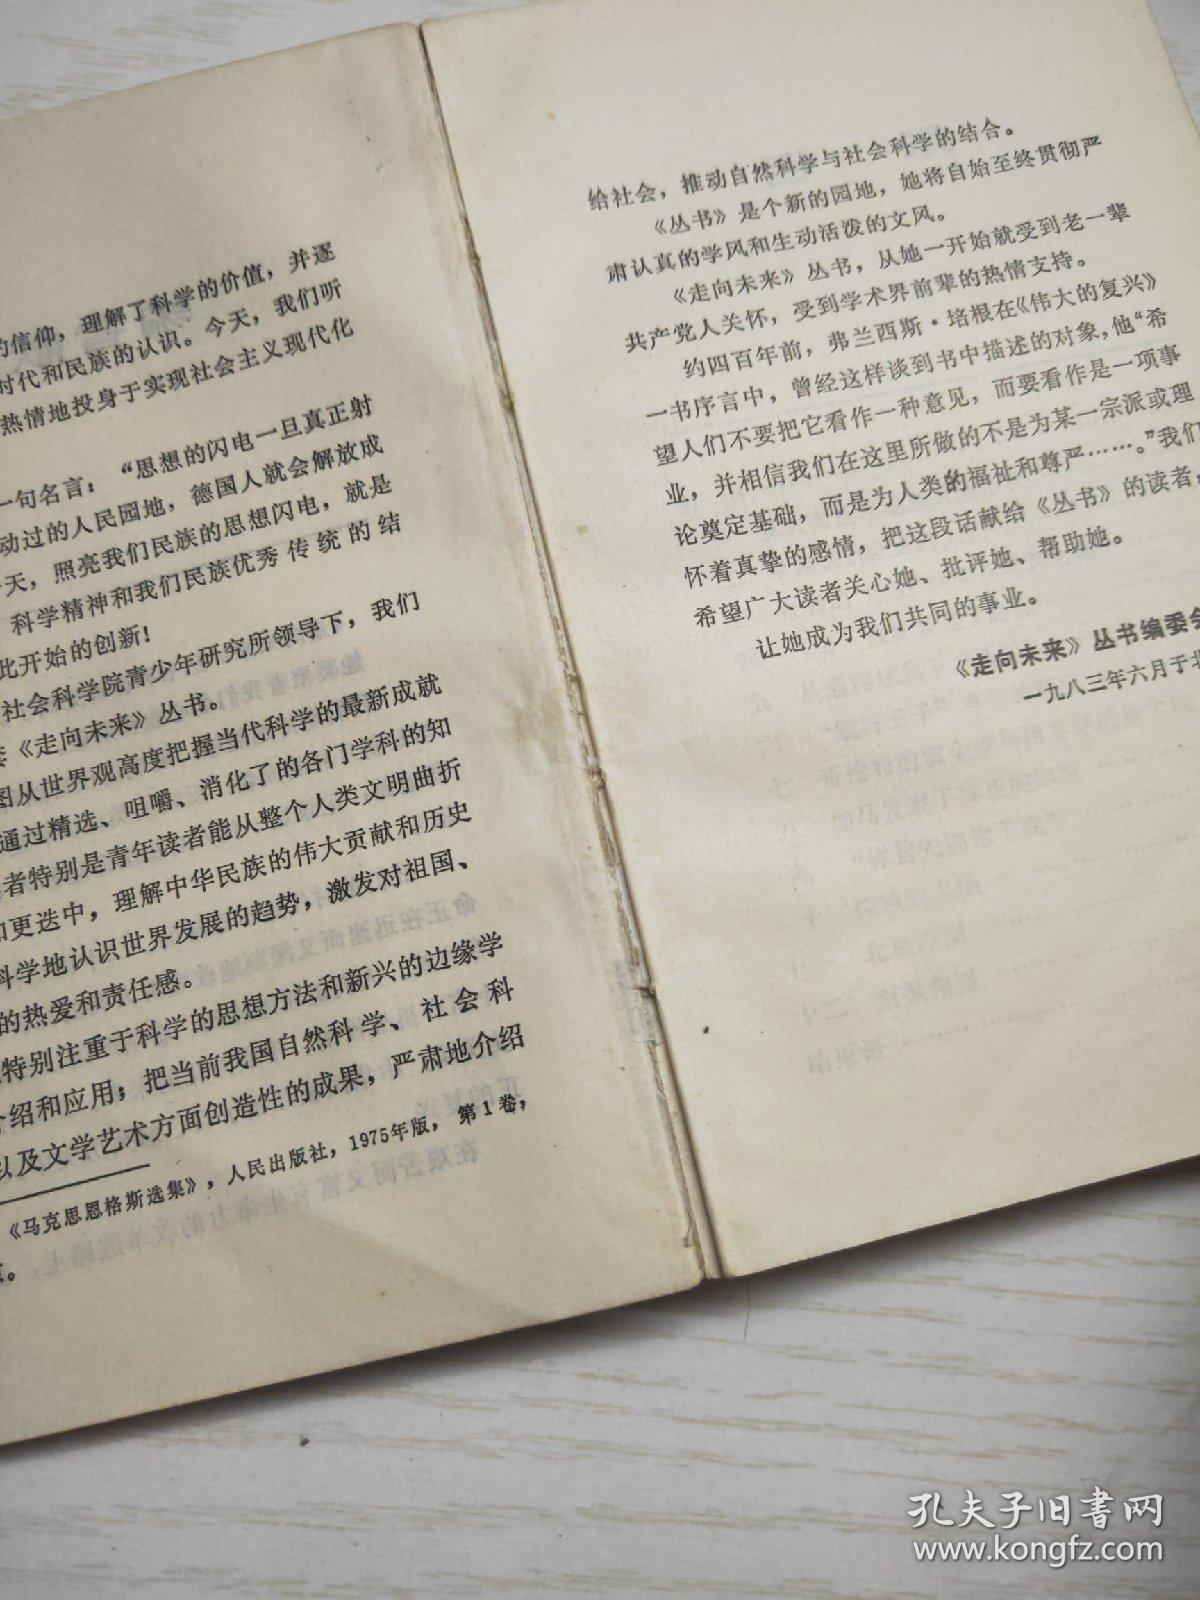 的信仰，理解了科学的价值，并逐
时代和民族的认识。今天，我们听
热情地投身于实现社会主义现代化
一句名言：“思想的闪电一旦真正射
动过的人民园地，德国人就会解放成
天，照亮我们民族的思想闪电，就是
科学精神和我们民族优秀传统的结
此开始的创新！
社会科学院青少年研究所领导下，我们
《走向未来》丛书。
图从世界观高度把握当代科学的最新成就
通过精选、咀嚼、消化了的各门学科的知
者特别是青年读者能从整个人类文明曲折
和更迭中，理解中华民族的伟大贡献和历史
科学地认识世界发展的趋势，激发对祖国、
的热爱和责任感。
特别注重于科学的思想方法和新兴的边缘学
介绍和应用；把当前我国自然科学、社会科
以及文学艺术方面创造性的成果，严肃地介绍
《马克思恩格斯选集》，人民出版社，1975年版，第1卷，
给社会，推动自然科学与社会科学的结合。
《丛书》是个新的园地，她将自始至终贯彻严
肃认真的学风和生动活泼的文风。
《走向未来》丛书，从她一开始就受到老一辈
共产党人关怀，受到学术界前辈的热情支持。
约四百年前，弗兰西斯·培根在《伟大的复兴》
一书序言中，曾经这样谈到书中描述的对象，他“希
望人们不要把它看作一种意见，而要看作是一项事
业，并相信我们在这里所做的不是为某一宗派或理
论奠定基础，而是为人类的福祉和尊严……。”我们
怀着真挚的感情，把这段话献给《丛书》的读者，
希望广大读者关心她、批评她、帮助她。
让她成为我们共同的事业。
《走向未来》丛书编委会
一九八三年六月于北
孔夫子旧书网
www.kongfz.com